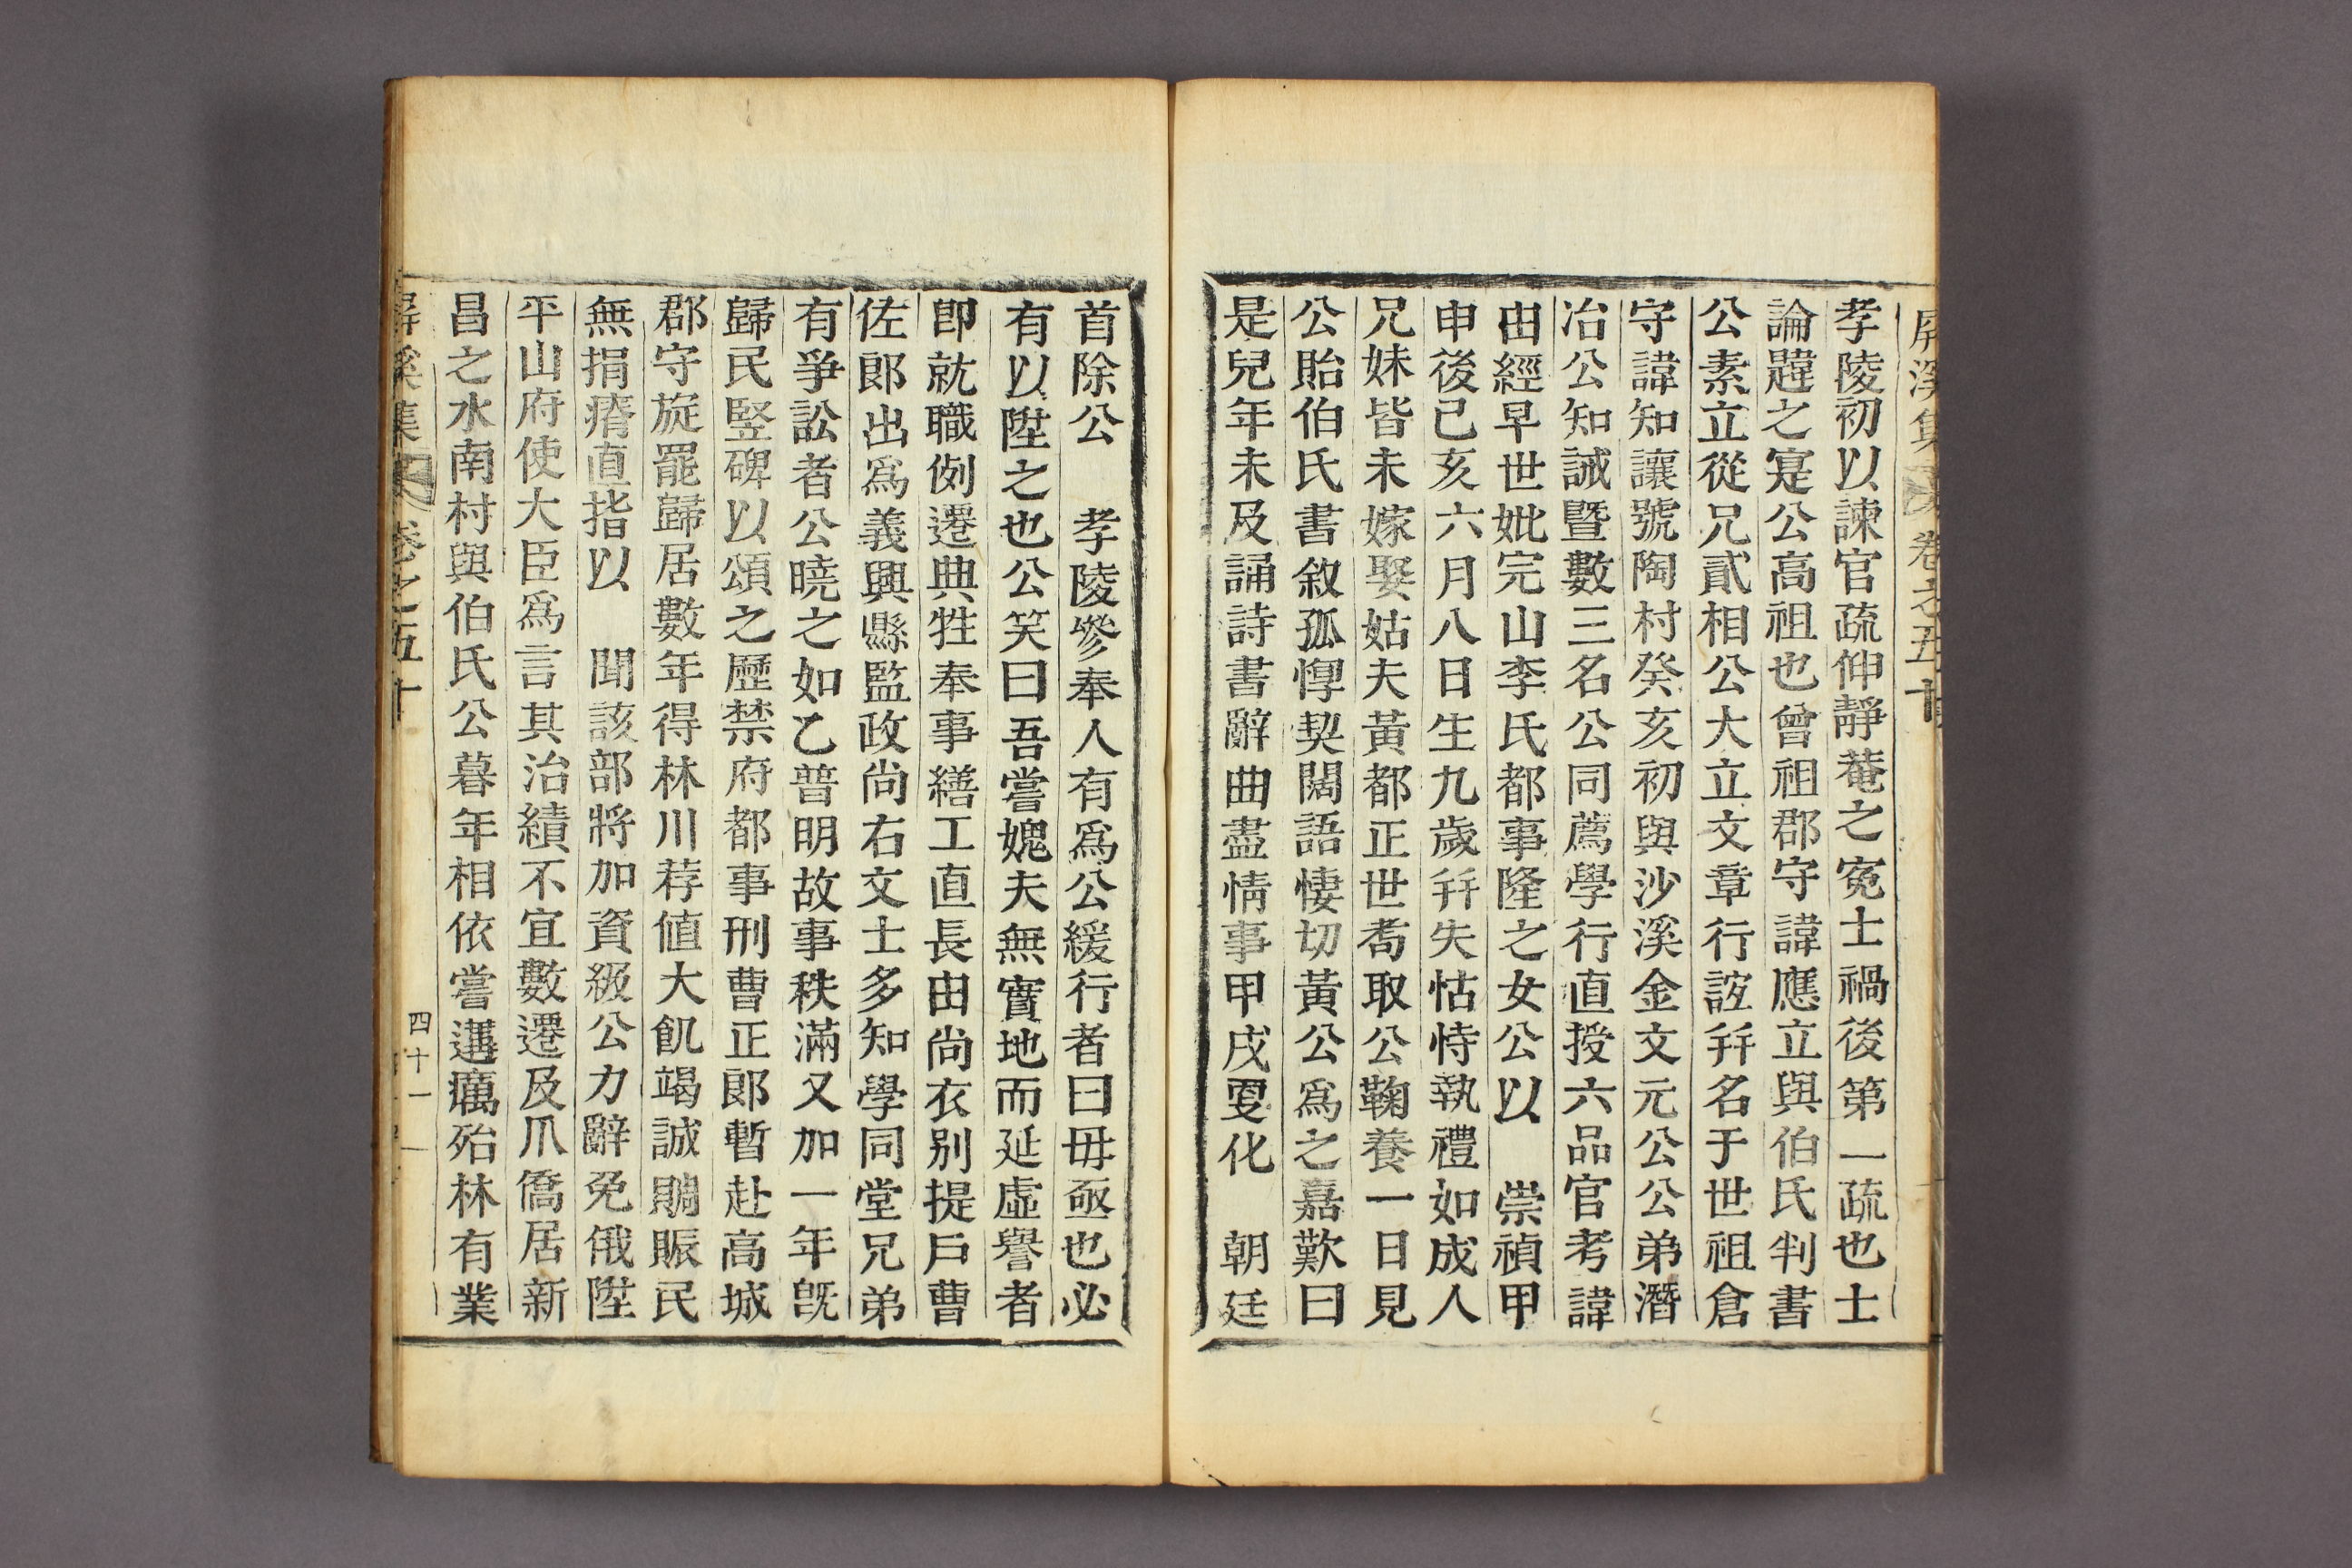 屏溪集卷之五十
孝陵初以諫官疏伸靜菴之寃士禍後第一疏也士
論韙之寔公高祖也曾祖郡守諱應立與伯氏判書
公素立從兄貳相公大立文章行誼幷名于世祖倉
守諱知讓號陶村癸亥初與沙溪金文元公公弟潛
冶公知誡曁數三名公同薦學行直授六品官考諱
由經早世妣完山李氏都事隆之女公以　崇禎甲
申後己亥六月八日生九歲幷失怙恃執禮如成人
兄妹皆未嫁娶姑夫黃都正世喬取公鞠養一日見
公貽伯氏書敘孤惸契闊語悽切黃公爲之嘉歎曰
是兒年未及誦詩書辭曲盡情事甲戌更化　朝廷
首除公　孝陵參奉人有爲公緩行者曰毋亟也必
有以陞之也公笑曰吾嘗媿夫無實地而延虛譽者
卽就職例遷典牲奉事繕工直長由尙衣別提戶曹
佐郞出爲義興縣監政尙右文士多知學同堂兄弟
有爭訟者公曉之如乙普明故事秩滿又加一年旣
歸民竪碑以頌之歷禁府都事刑曹正郞暫赴高城
郡守旋罷歸居數年得林川荐値大飢竭誠賙賑民
無捐瘠直指以　聞該部將加資級公力辭免俄陞
平山府使大臣爲言其治績不宜數遷及爪僑居新
昌之水南村與伯氏公暮年相依嘗遘癘殆林有業
屏溪集卷之五十
四十一